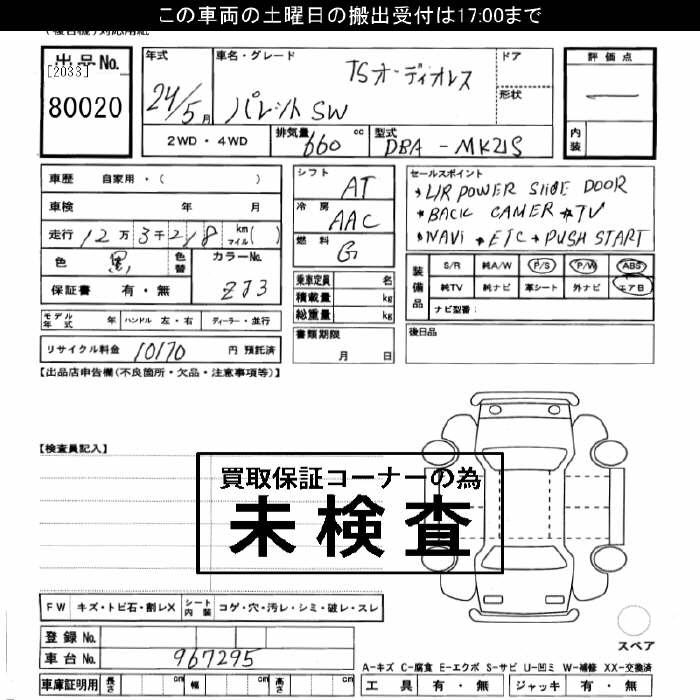 この車両の土曜日の搬出受付は17:00まで
出品No.
[2033]
80020
年式
24/5月
車名・グレード
TSオーディオレス
パレットSW
ドア
形状
評価点
内装
2WD・4WD
排気量
660
cc
型式
DBA-MK21S
車歴 自家用・( )
車検 年 月
走行 12万3千218 km マイル( )
色 黒 色替
カラーNo.
ZJ3
保証書 有・無
モデル年式 年
ハンドル 左・右
ディーラー・並行
リサイクル料金 10170 円 預託済
シフト AT
冷房 AAC
燃料 G
乗車定員 名
積載量 kg
総重量 kg
書類期限
月 日
セールスポイント
→L/R POWER SlIDE DOOR
*BACK CAMER *TV
*NAVi *ETC → PUSH START
装備品
S/R 純A/W P/S P/W ABS
純TV 純ナビ 革シート 外ナビ エアB
ナビ型番:
後日品
【出品店申告欄(不良箇所・欠品・注意事項等)】
【検査員記入】
買取保証コーナーの為
未検査
FW キズ・トビ石・割レX
シート内装 コゲ・穴・汚レ・シミ・破レ・スレ
登録No.
車台No. 967295
車庫証明用 長さ cm 幅 cm 高さ cm
スペア
A-キズ C-腐食 E-エクボ S-サビ U-凹ミ W-補修 XX-交換済
工具 有・無 ジャッキ 有・無